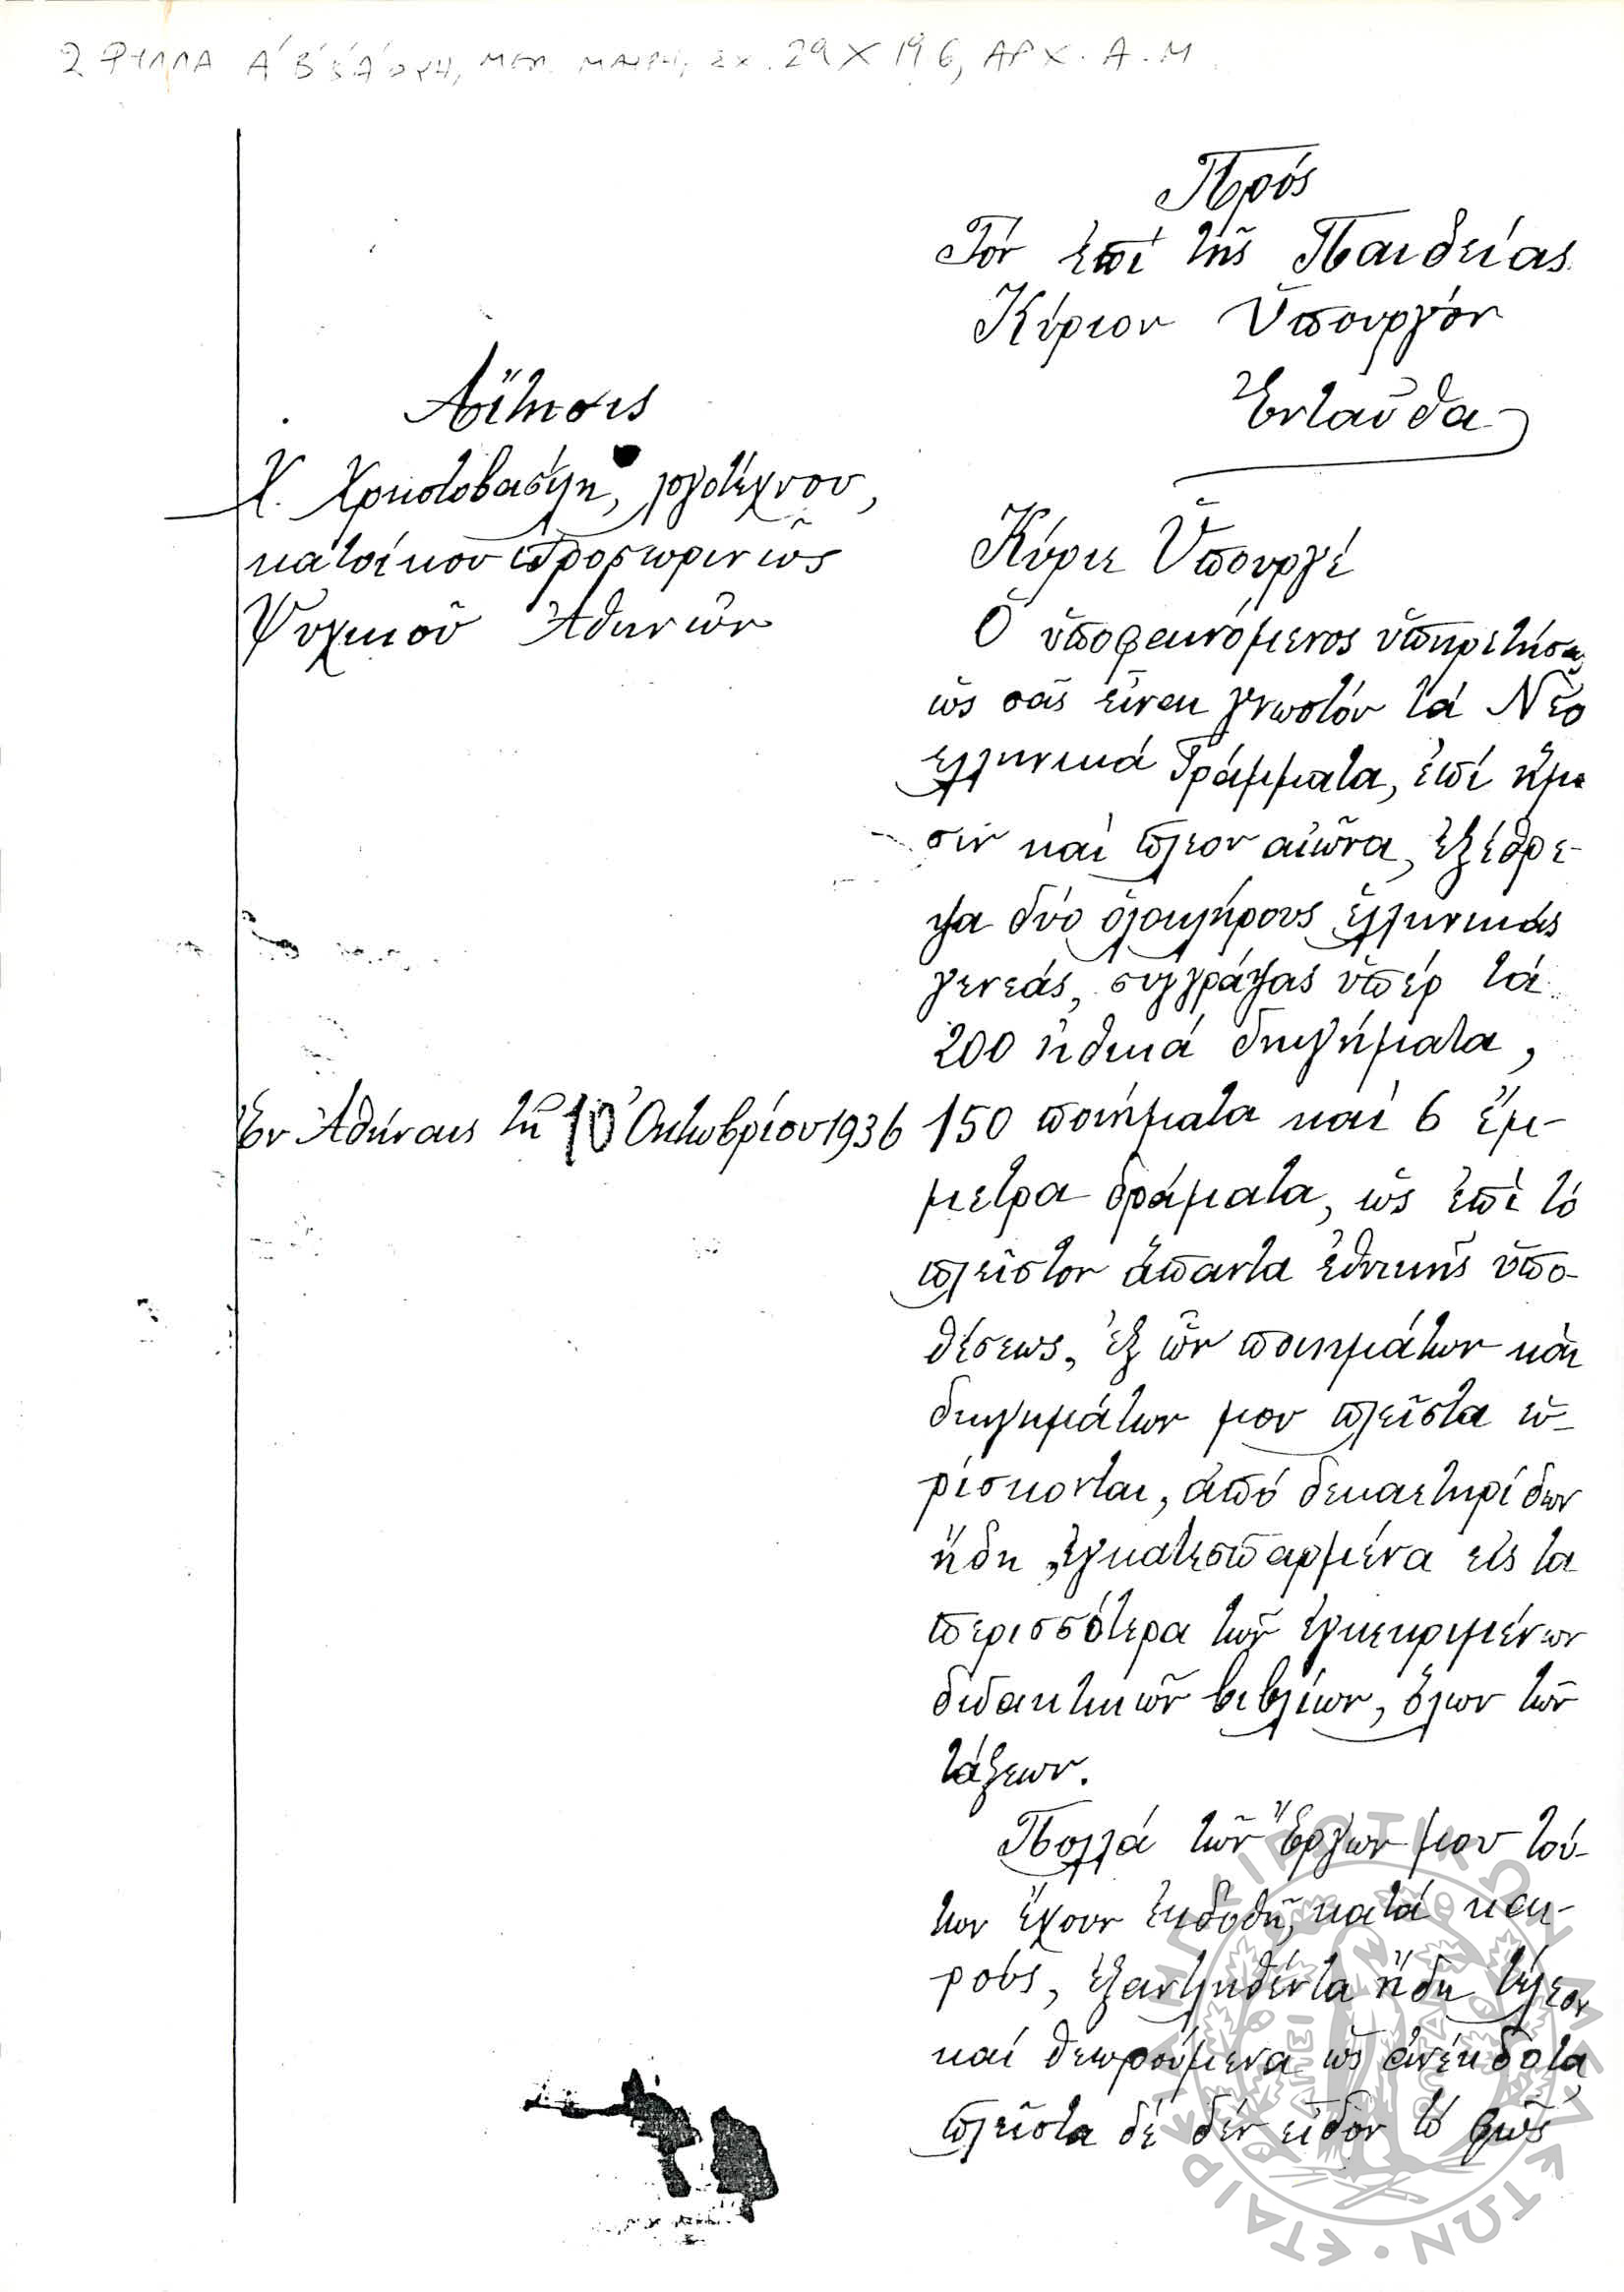 2 ΦΥΛΛΑ Α΄Β΄ 29Χ19,6, ΑΡΧ. Α.Μ.
Πρός
Τόν ἐπί τῆς Παιδείας
Κύριον Ὑπουργόν
Ἐνταῦθα
Αἴτησις
Χ. Χρηστοβασίλη, λογοτέχνου,
κατοίκου προσωρινῶς
Ψυχικοῦ Ἀθηνῶν
Ἐν Ἀθήναις τῇ 10 Ὀκτωβρίου 1936
Κύριε Ὑπουργέ
Ὁ ὑποφαινόμενος ὑπηρετήσας
ὡς σᾶς εἶναι γνωστόν τά Νεο
ελληνικά Γράμματα, ἐπί ἥμι
σιν καί πλέον αἰῶνα, ἐξέθρε-
ψα δύο ὁλοκλήρους ἑλληνικάς
γενεάς, συγγράψας ὑπέρ τά
200 ἠθικά διηγήματα,
150 ποιήματα καί 6 ἔμ-
μετρα δράματα, ὡς ἐπί τό
πλεῖστον ἅπαντα ἐθνικῆς ὑπο-
θέσεως, ἐξ ὧν ποιημάτων καί
διηγημάτων μου πλεῖστα εὑ-
ρίσκονται, ἀπό δεκαετηρίδων
ἤδη, ἐγκατεσπαρμένα εἰς τα
περισσότερα τῶν ἐγκεκριμένων
διδακτικῶν βιβλίων, ὅλων τῶν
τάξεων.
Πολλά τῶν Ἔργων μου τού-
των ἔχουν ἐκδοθῆ, κατά και-
ρούς, ἐξαντληθέντα ἤδη τέλεον
καί θεωρούμενα ὡς ἀνέκδοτα,
πλεῖστα δέ δέν εἶδον τό φῶς
ΕΤΑΙΡΕΙΑ ΗΠΕΙΡΩΤΙΚΩΝ ΜΕΛΕΤΩΝ